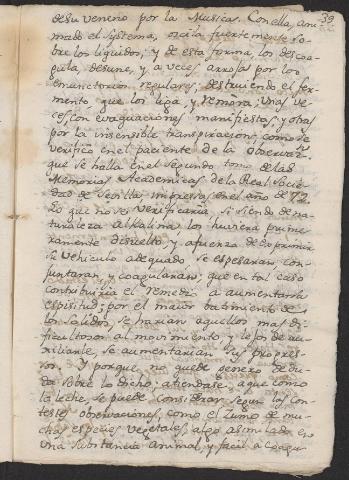 39
de su veneno por la Musica. Con ella, ani
mado el sistema, oscila fuertemente so
bre los liquidos; y de esta forma, los descoa
gula, desune, y a veces arroja por los
emunctorios regulares, destruiendo el fer
mento, que los liga, y remora; unas ve
ces con evaquaciones manifiestas, y otras
por la insensible transpiracion, como se
verificò en el paciente de la observaz.n
que se halla en el segundo tomo de las
Memorias Academicas de la Real Socie
dad de Sevilla impresa en el año de 72.
Lo que no se verificaria, si siendo de na
turaleza alkalina los huviera prime
ramente disuelto, y a fuerza de exprimir
su vehiculo adequado se espesaran con
juntaran, y coagularan; que en tal caso
contribuiria el remedio a aumentar la
espesitud; por el maior batimento de
los solidos, se harian aquellos mas di
ficultosos al movimiento, y lejos de au
xiliante, se aumentarian sus progres
sos. Y porque no quede genero de du
da sobre lo dicho; atiendase, a que como
la leche, se puede considerar segun las con
testes observaciones, como el Zumo de mu
chas especies vegetales, algo asimilado en
una substancia animal, y facil a coagu